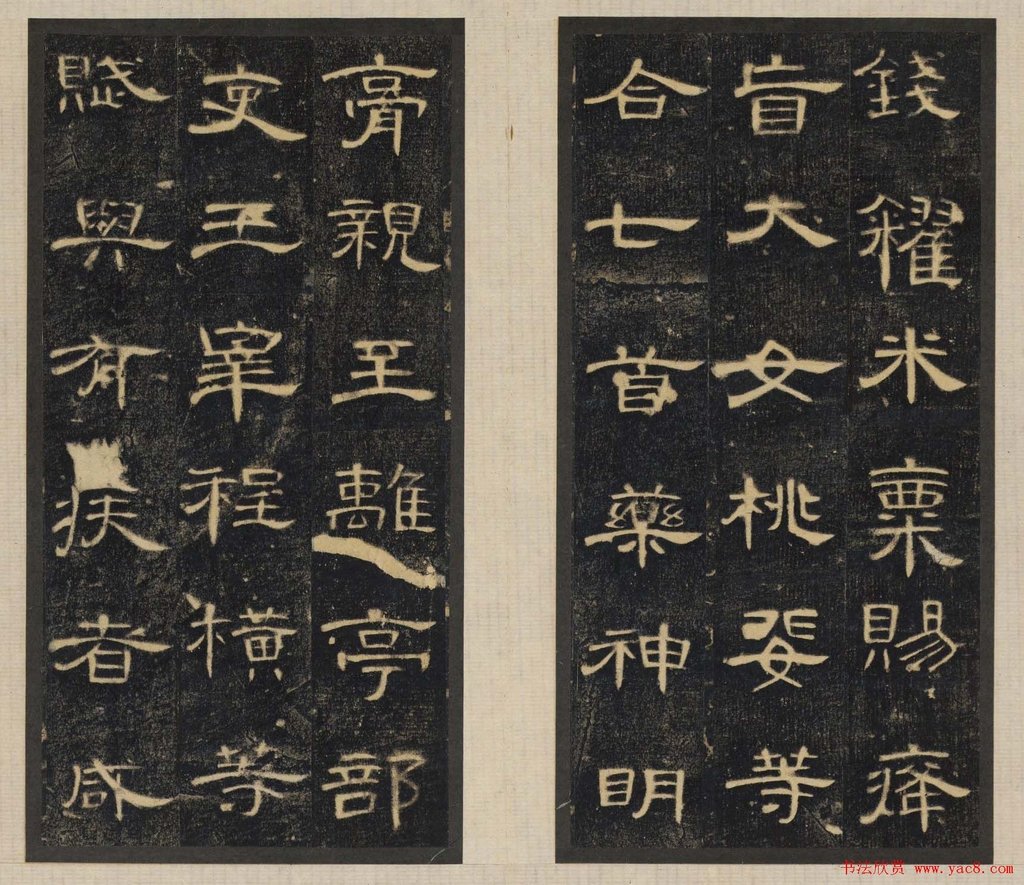 錢糴米粟賜癃
盲大女桃婓等
合七首藥神明
膏親至離亭部
吏王宰程橫等
賦與有疾者咸
书法欣赏 www.yac8.com